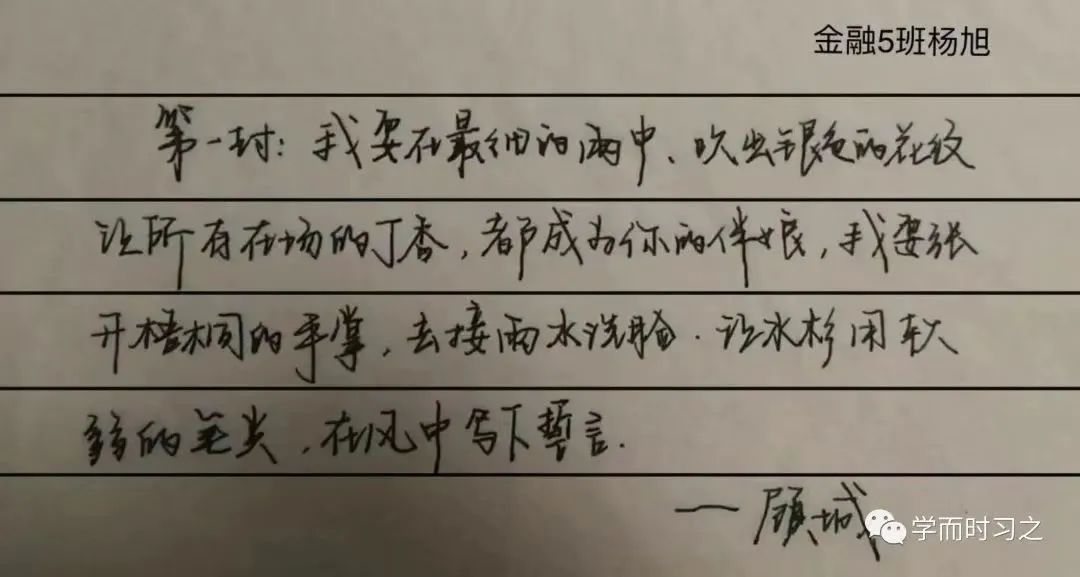 金融5班杨旭
第一封：我要在最细的雨中、吹出银色的花纹
让所有在场的丁香，都成为你的伴娘，我要张
开梧桐的手掌，去接雨水洗脸．让水杉用软
弱的笔尖，在风中写下誓言．
——顾城
学而时习之